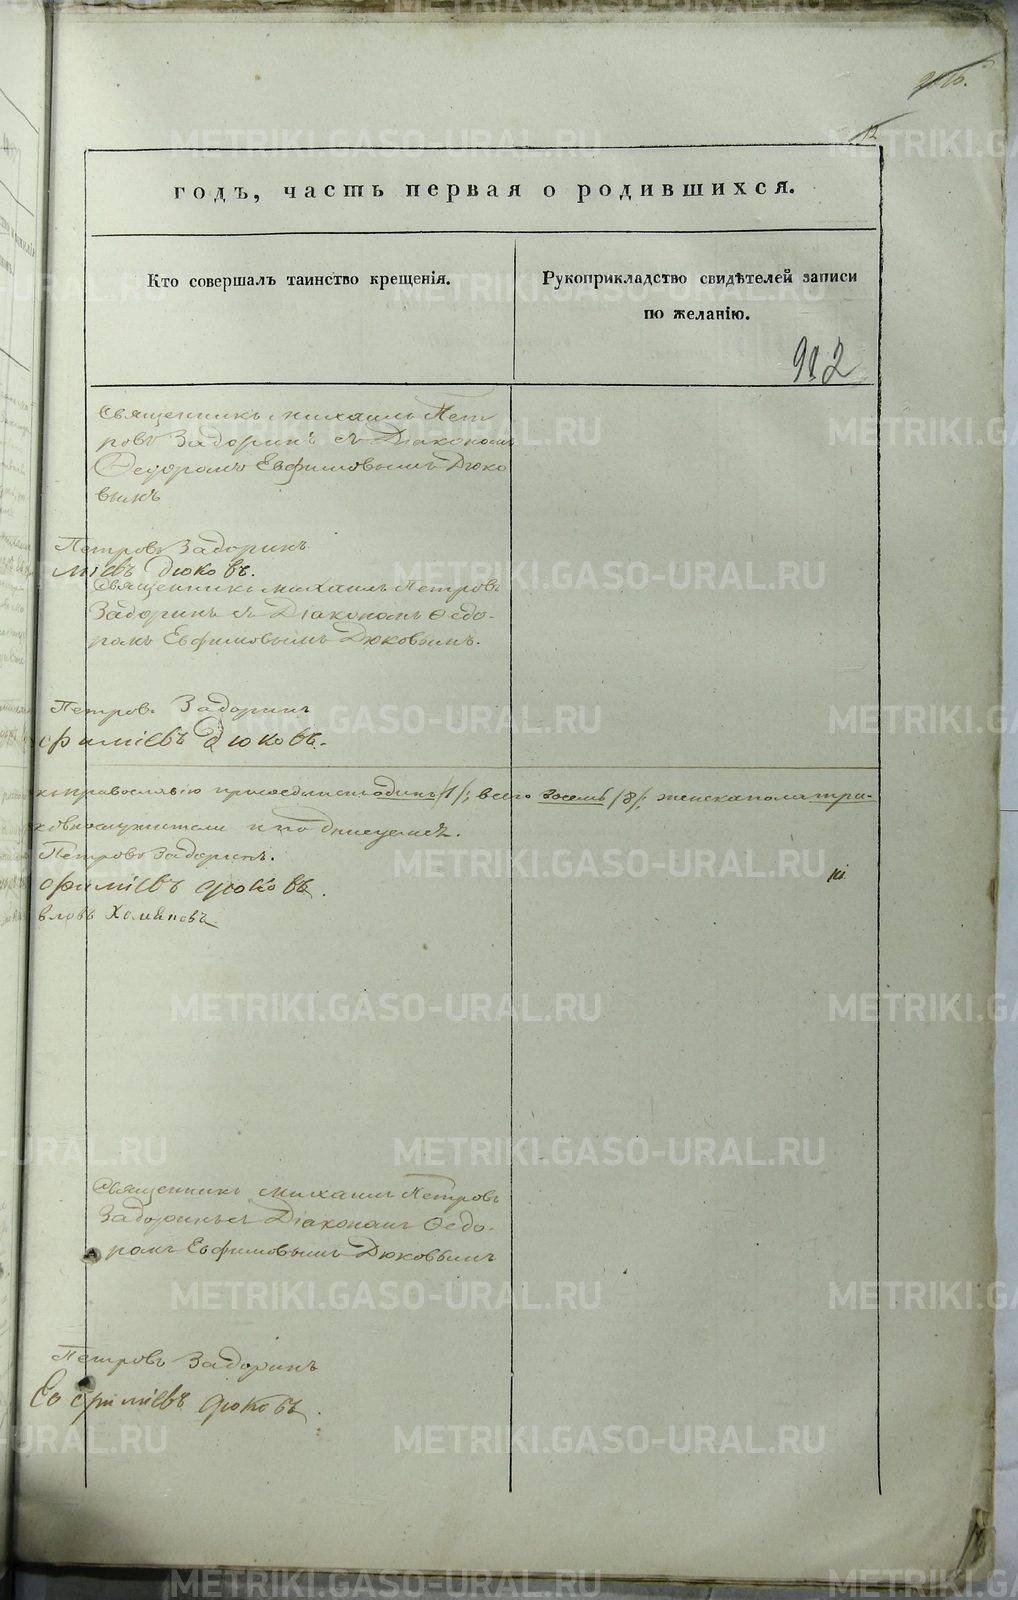 12
годъ, часть первая о родившихся.
Кто совершалъ таинство крещенія.
Рукоприкладство свидѣтелей записи
по желанію.
912
Священникъ Михаилъ Пет
ровъ Задоринъ съ Діакономъ
Ѳедоромъ Евфимовымъ Дюко
вымъ
Петровъ Задоринъ
міевъ Дюковъ.
Священникъ Михаилъ Петровъ
Задоринъ съ Діакономъ Ѳедо-
ромъ Евфимовымъ Дюковымъ.
Петровъ Задоринъ
фиміевъ Дюковъ.
къ православію присоединенъ одинъ /1/; всего восемь /8/; женска пола три-
ковнослужители и подписуемся.
Петровъ Задоринъ.
фиміевъ Дюковъ.
вловъ Хомяковъ
Священникъ Михаилъ Петровъ
Задоринъ съ Діакономъ Ѳедо-
ромъ Евфимовымъ Дюковымъ
Петровъ Задоринъ
Ефиміевъ Дюковъ.
METRIKI.GASO-URAL.RU